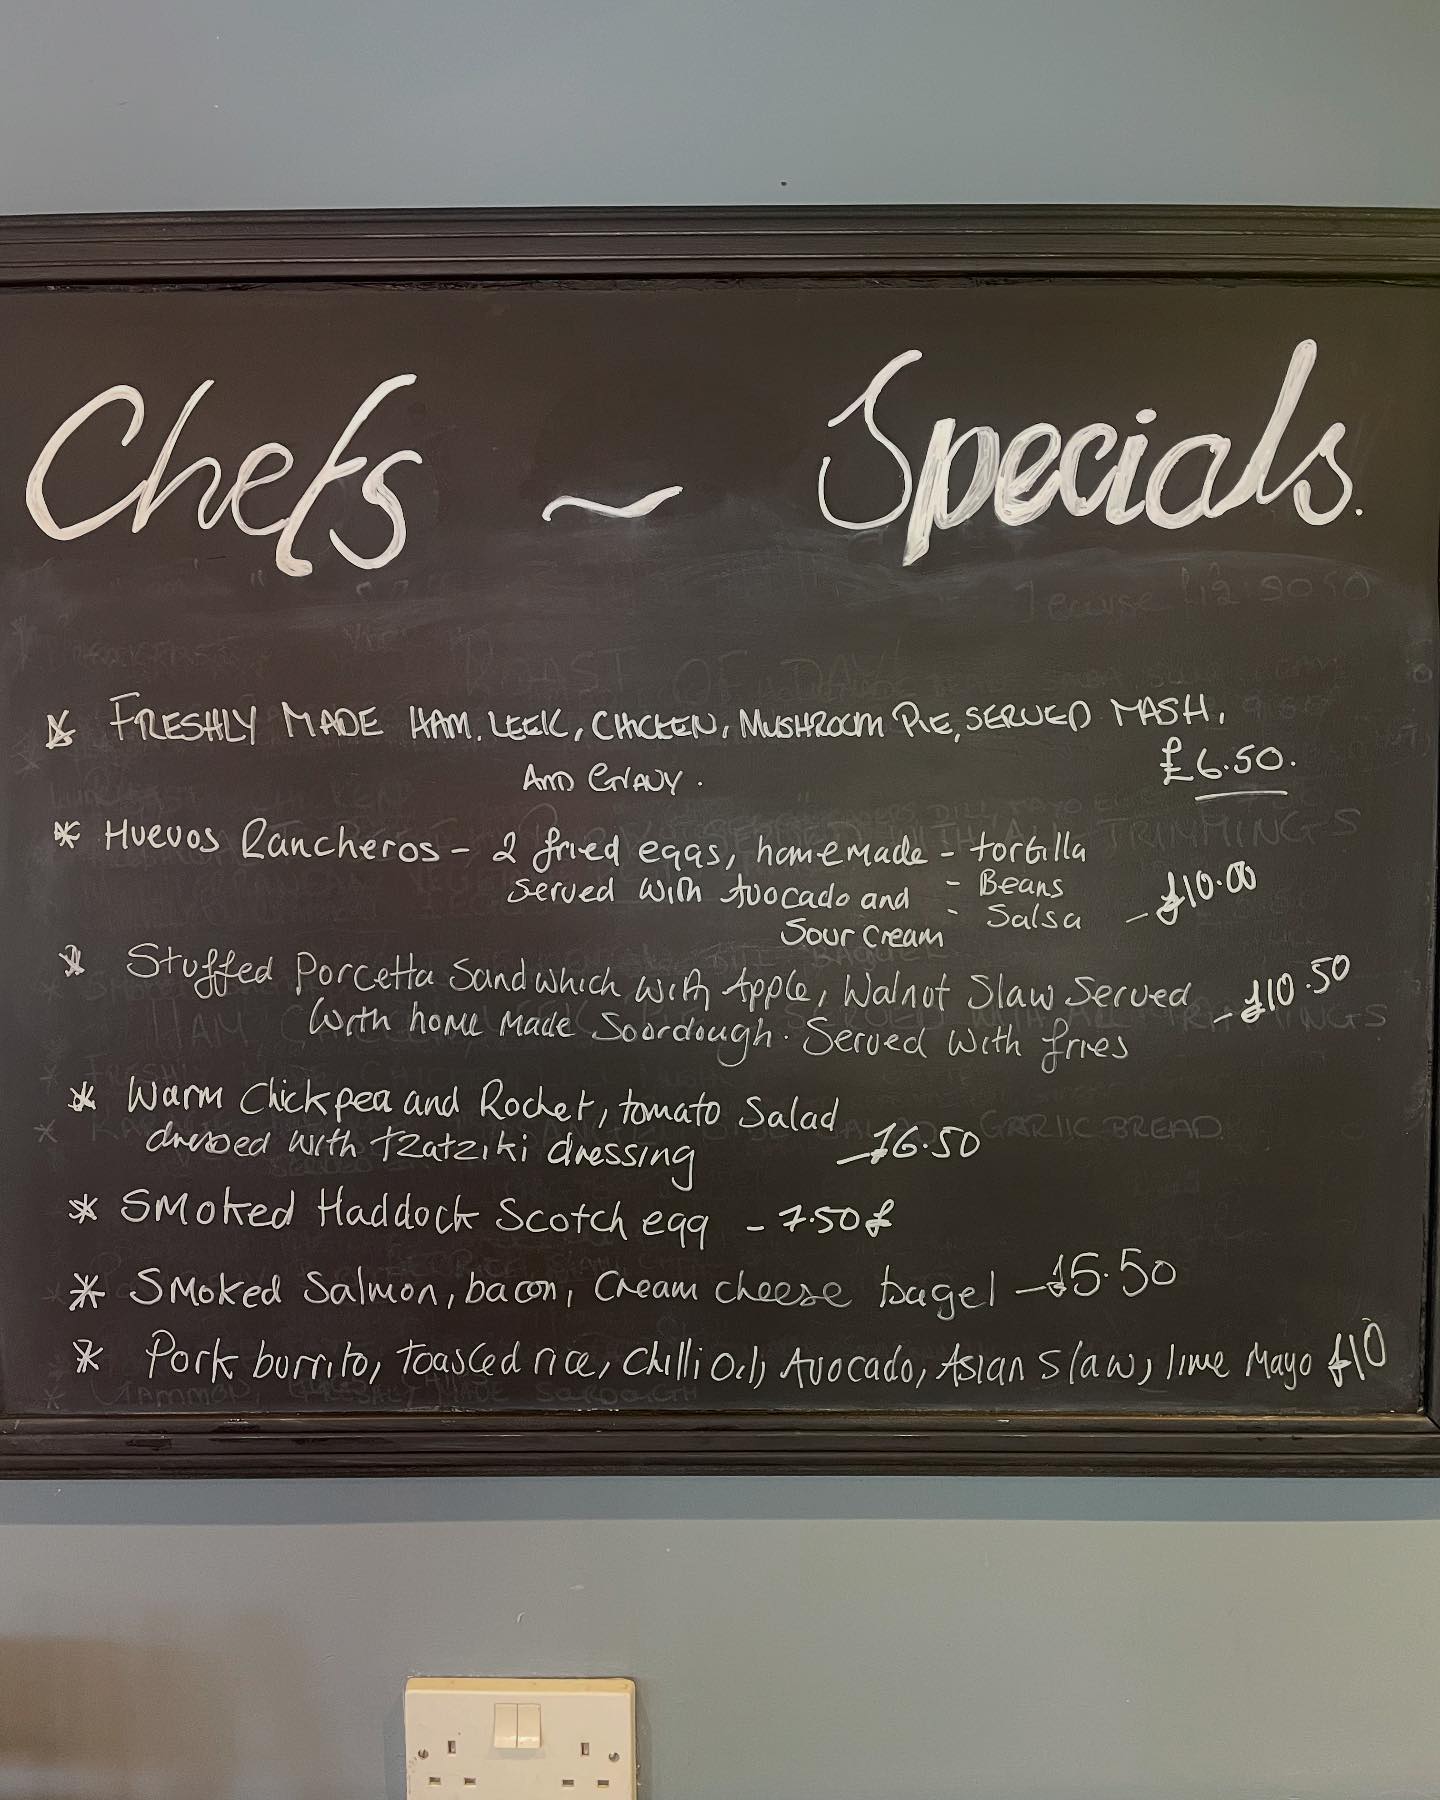 Chefs ~ Specials.
* FRESHLY MADE HAM, LEEK, CHICKEN, MUSHROOM PIE, SERVED MASH,
AND GRAVY. £6.50.
* Huevos Rancheros - 2 fried eggs, homemade - tortilla
served with Avocado and - Beans
Sour cream - Salsa - £10.00
* Stuffed Porcetta Sandwhich with Apple, Walnot Slaw Served
with home made Soordough. Served with fries - £10.50
* Warm Chickpea and Rocket, tomato Salad
dressed with tzatziki dressing - £6.50
* Smoked Haddock Scotch egg - 7.50£
* Smoked Salmon, bacon, Cream cheese bagel - £5.50
* Pork burrito, toasted rice, Chilli Oil, Avocado, Asian Slaw, lime Mayo £10